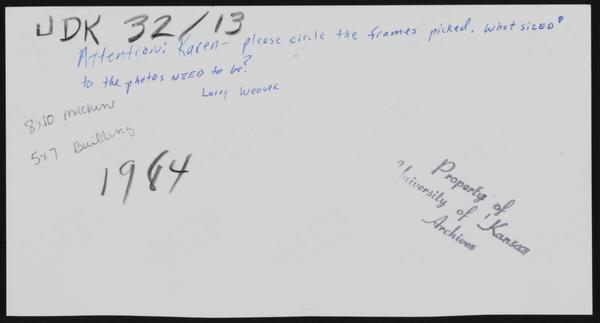 UDK 32/13
Attention: Karen - please circle the frames picked. What SIZED?
to the photos NEED to be?
Larry Weaver
8x10 machine
5x7 Building
1964
Property of
University of Kansas
Archives